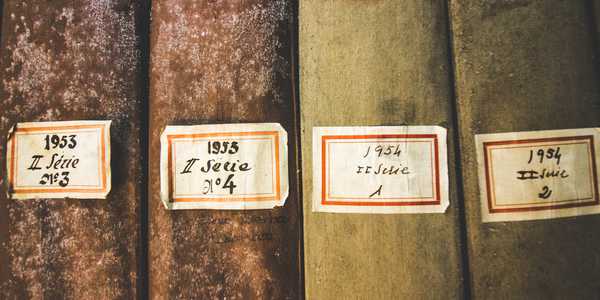 1953
II Série
Nº 3
1953
II Série
Nº 4
1954
II Série
1
1954
II Série
2